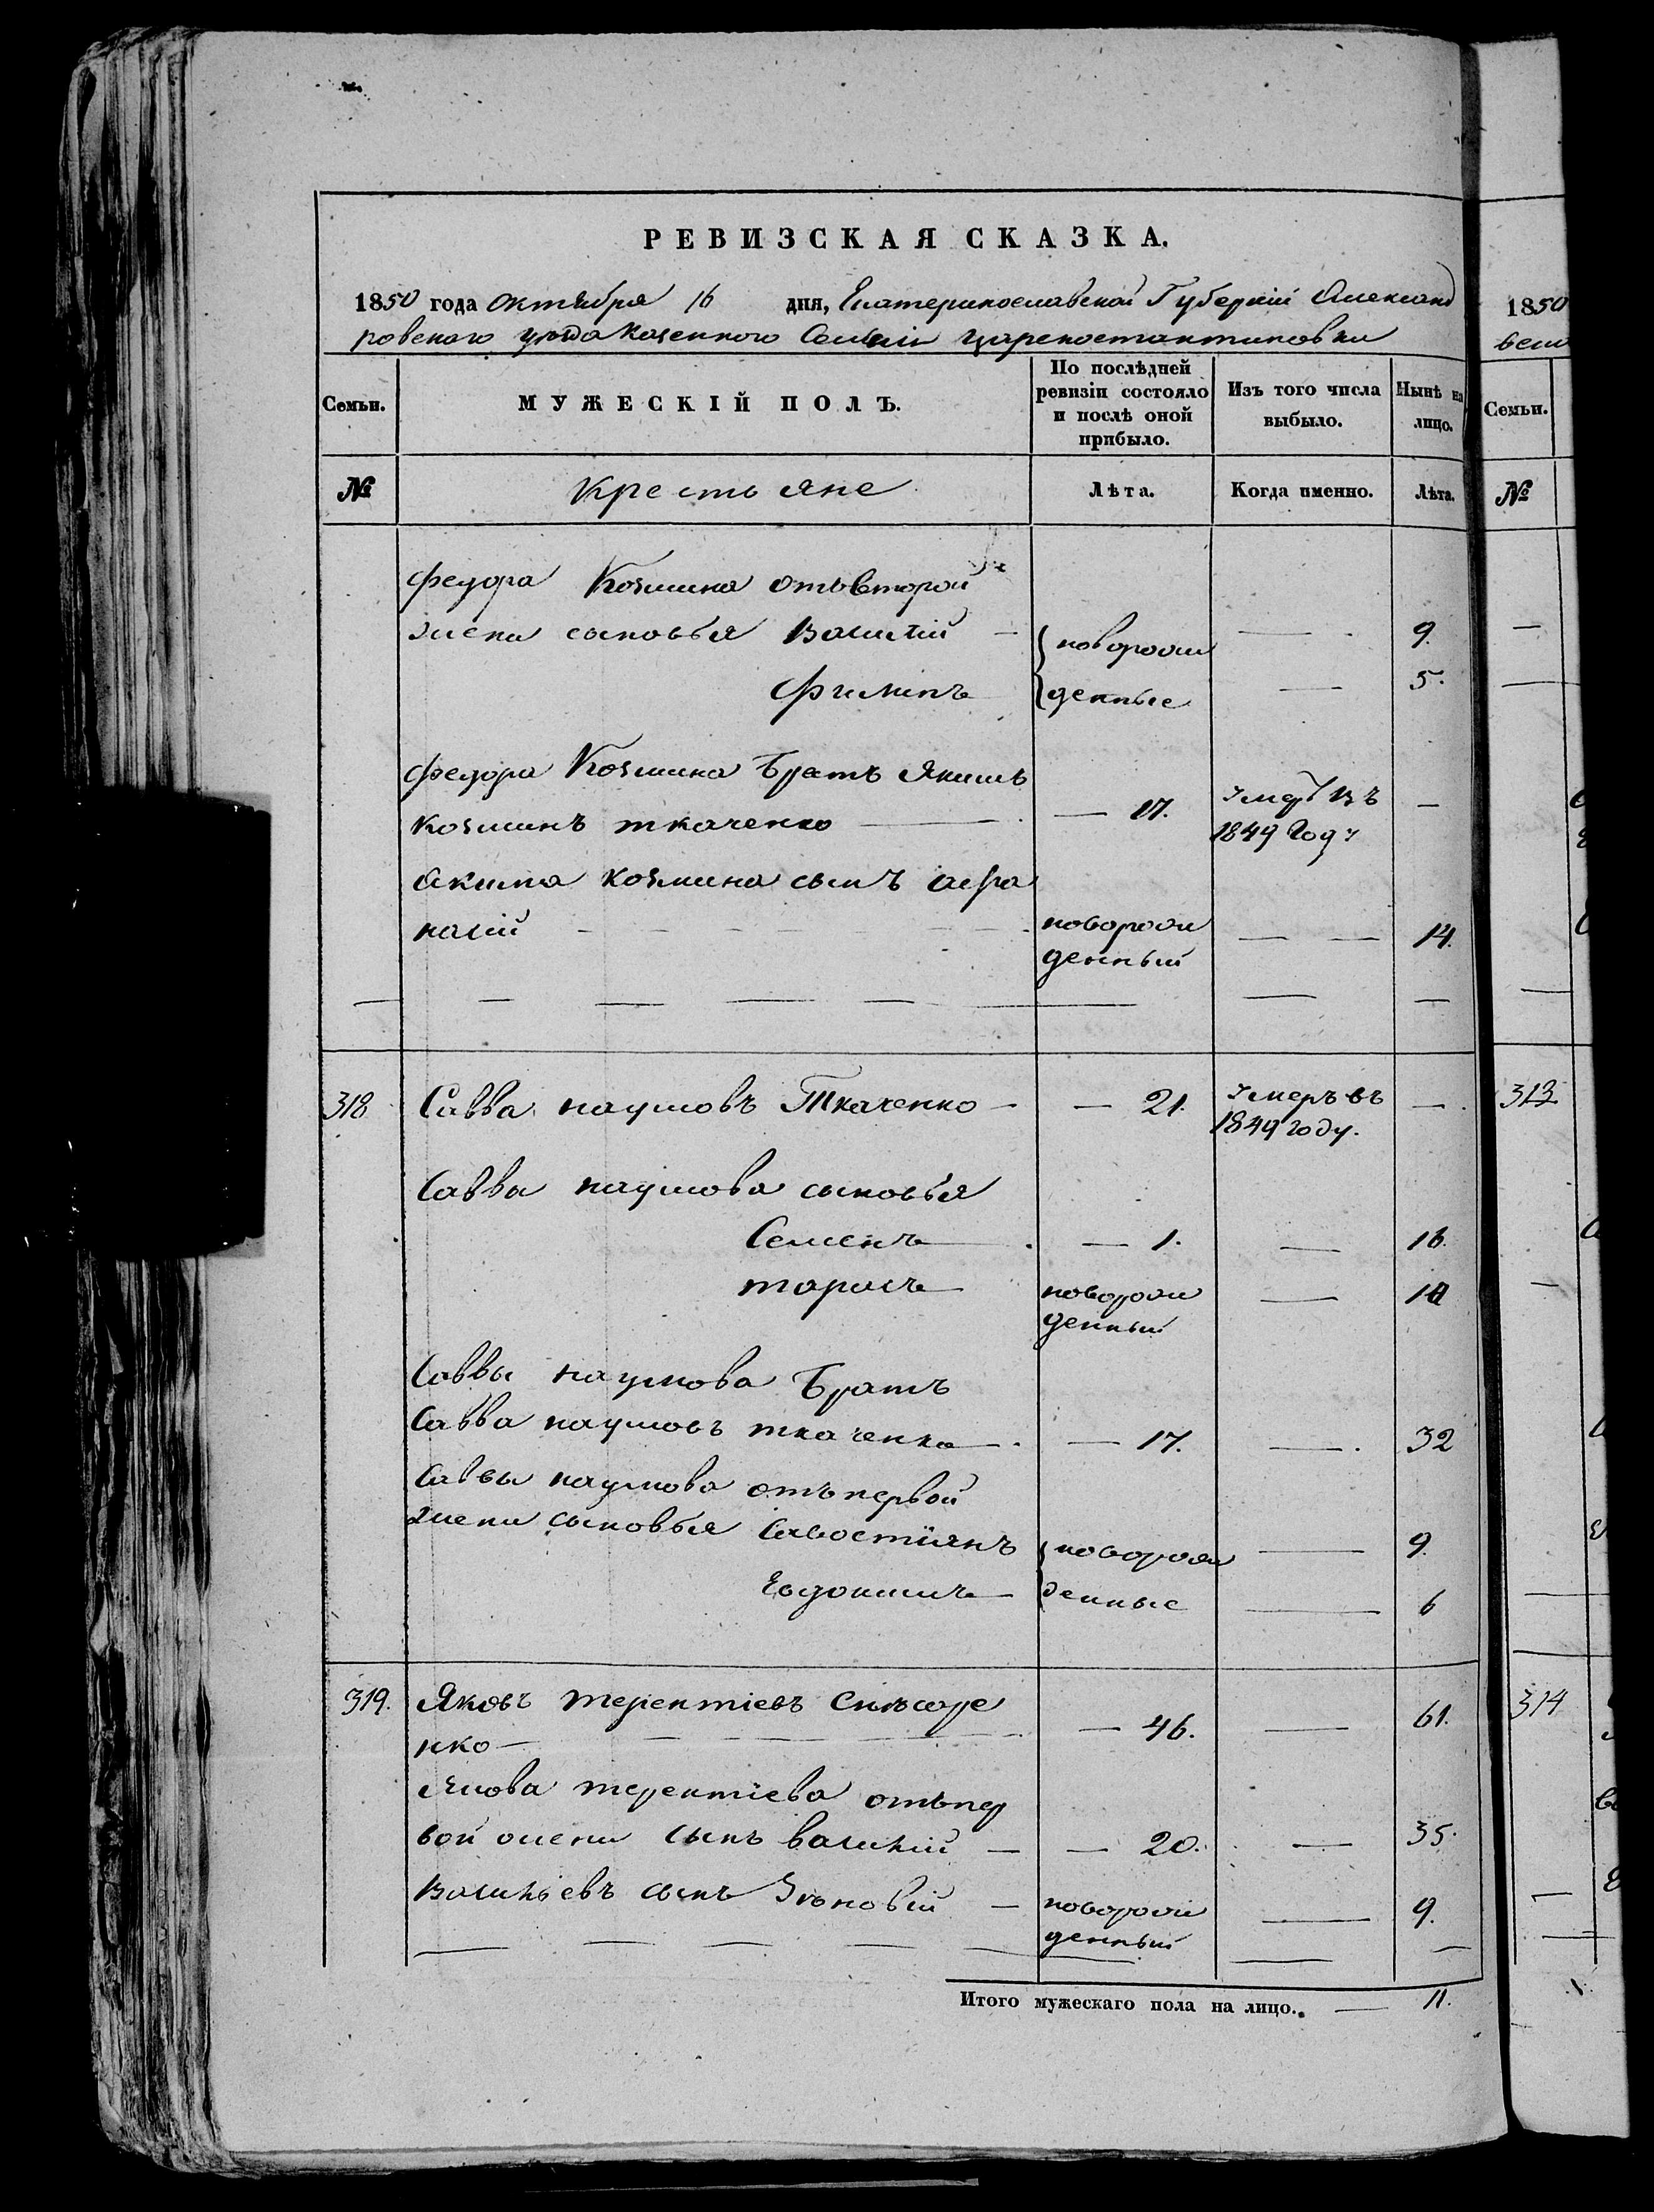 РЕВИЗСКАЯ СКАЗКА.
1850 года Октября 16 дня, Екатеринославской Губерніи Александ
ровскаго уезда Казенного Селенія Цареконстантиновки
Семьи. МУЖЕСКІЙ ПОЛЪ. По послѣдней ревизіи состояло и послѣ оной прибыло. Изъ того числа выбыло. Нынѣ на лицо.
№ Крестьяне Лѣта. Когда именно. Лѣта.
Федора Козмина отъ второй
жены сыновья Василій новорож 9.
Филипъ денные 5.
Федора Козмина Братъ Якимъ
Козминъ ткаченко 17. Умеръ въ 1849 Году
Акима Козмина сынъ Афа
насій новорож денный 14.
318 Савва наумовъ Ткаченко 21. Умеръ въ 1849 году.
Саввы наумова сыновья
Семенъ 1. 16.
тарасъ новорож денный 10
Саввы наумова Братъ
Савва наумовъ ткаченко 17. 32
Саввы наумова отъ первой
жены сыновья Савостіянъ новорож 9.
Евдокимъ денные 6
319. Яковъ терентіевъ
нко 46. 61.
Якова терентіева отъ пер
вой жены сынъ василій 20. 35.
Васильевъ сынъ Зѣновій новорож денный 9.
Итого мужескаго пола на лицо. 11.
1850
Семьи.
№
313
314